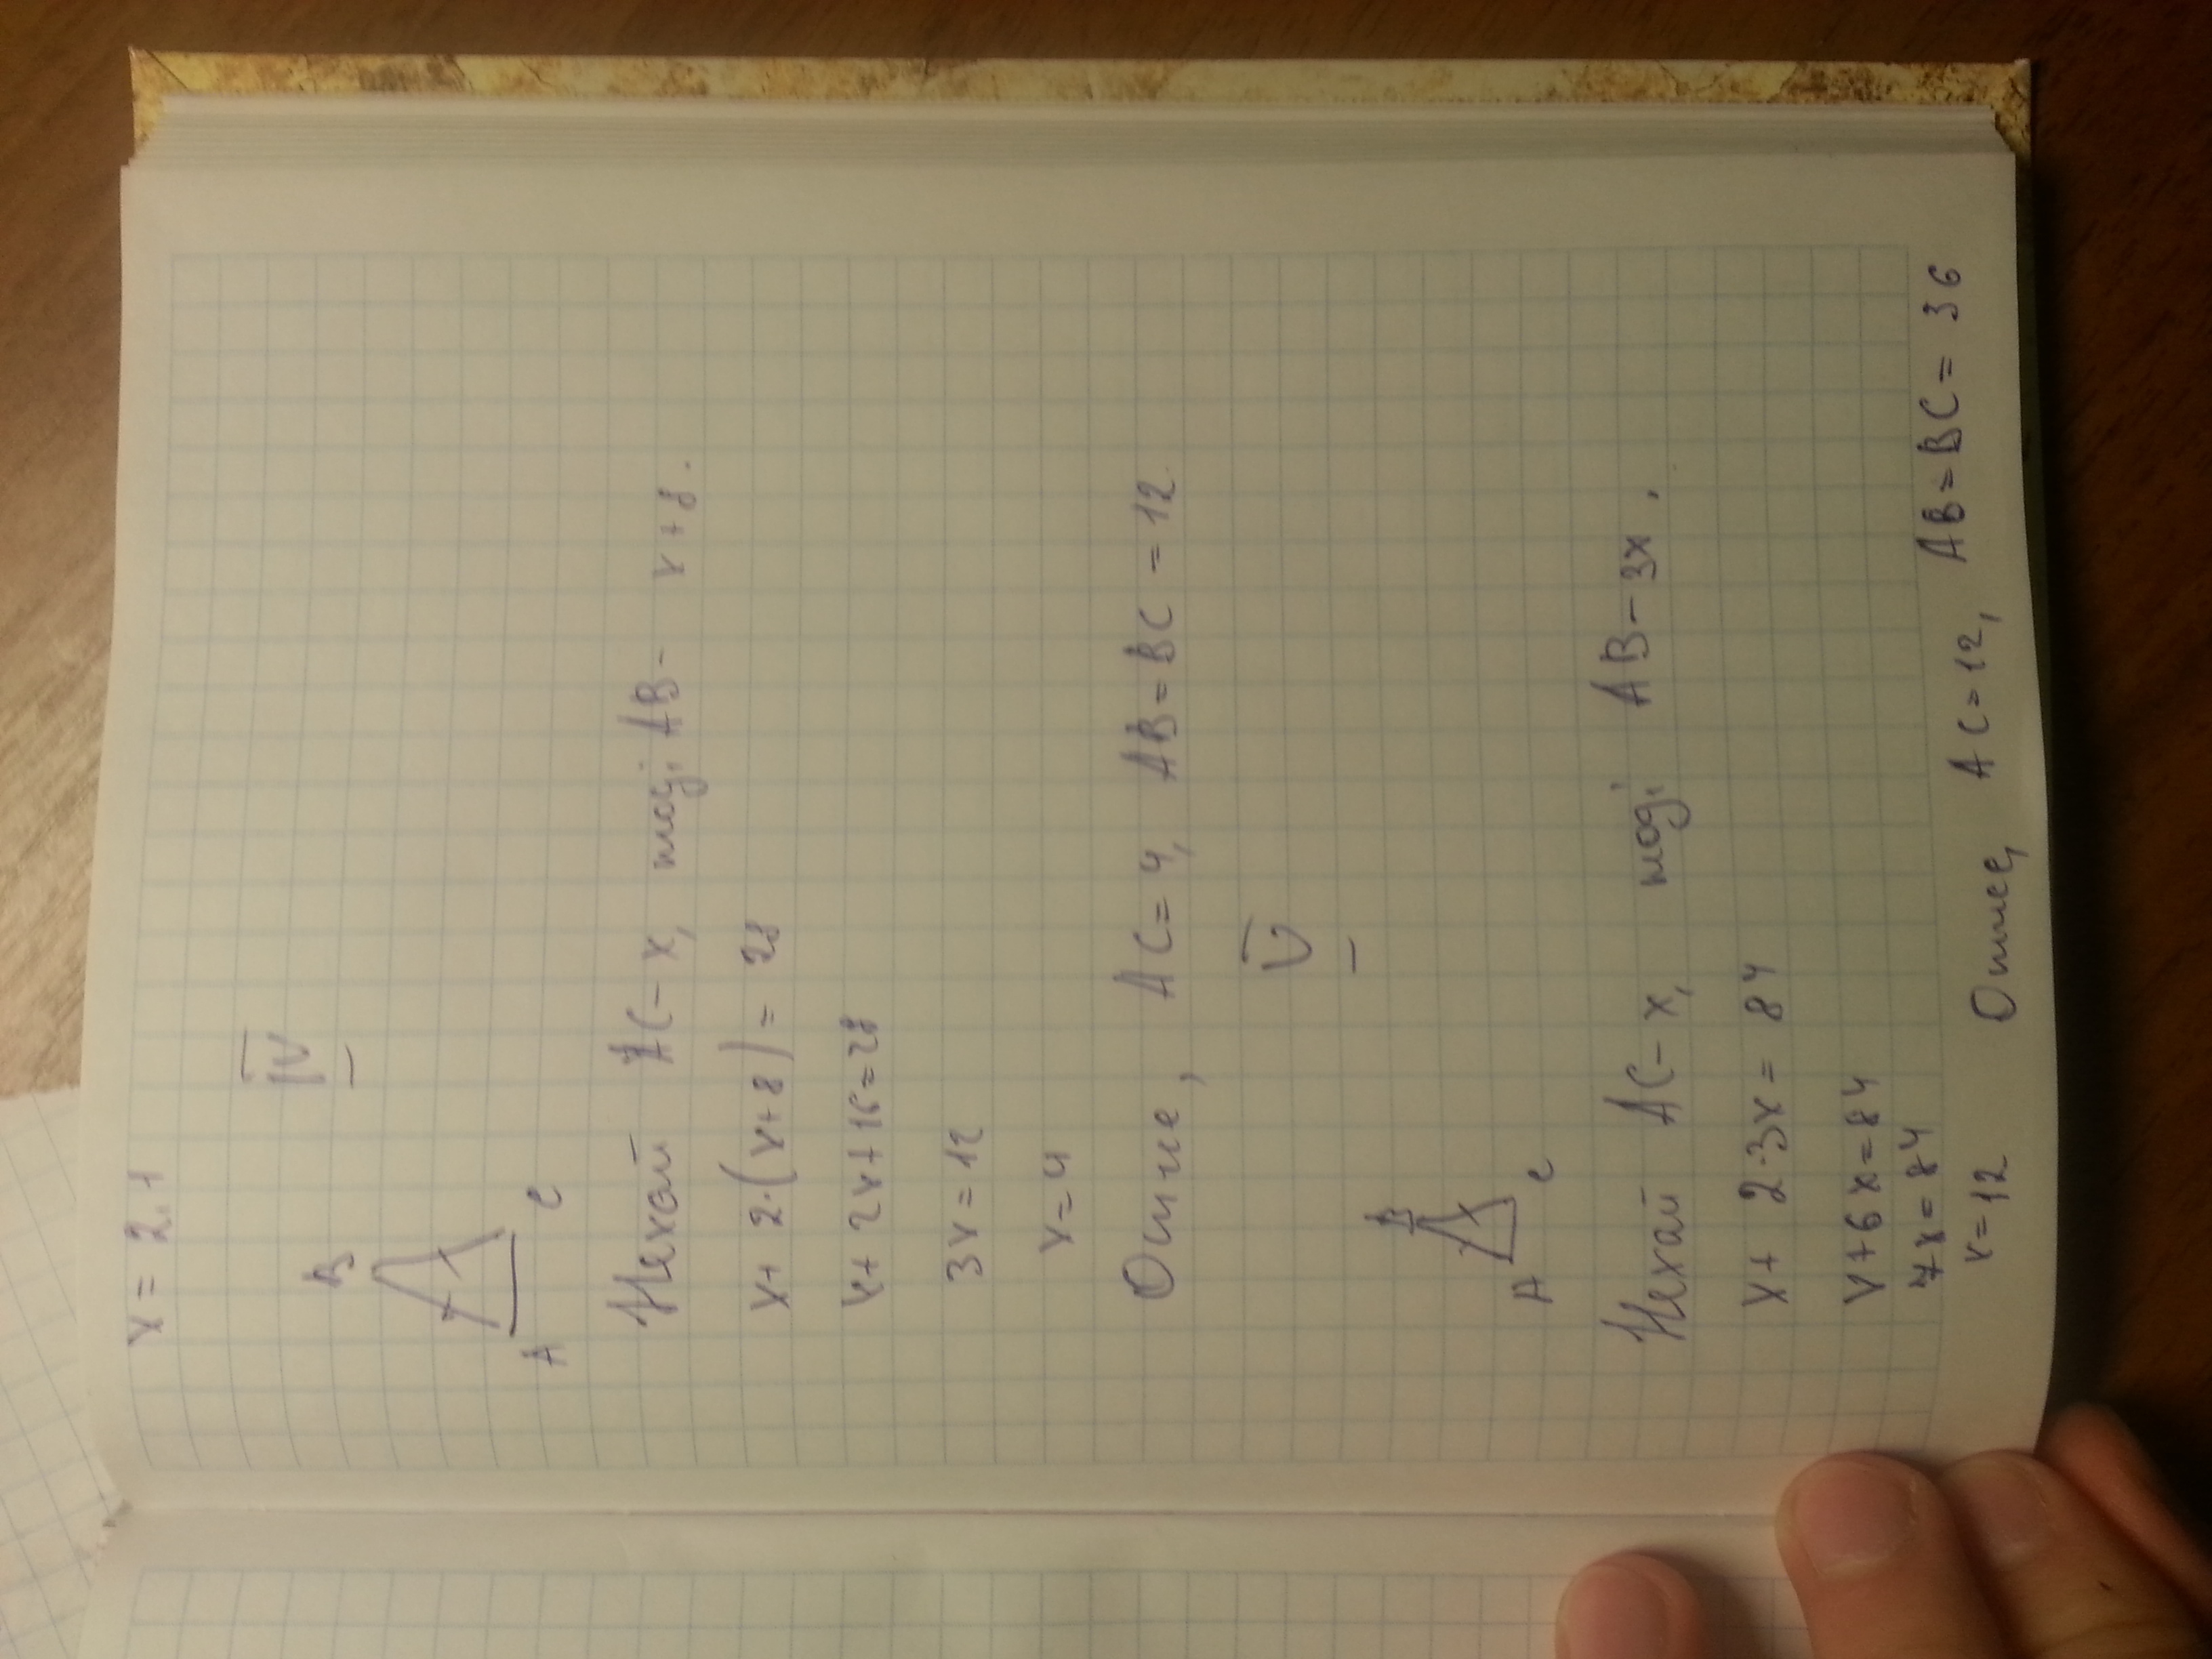 x = 2,1
IV
B
A C
Нехай AC – x, тоді AB – x+8.
x + 2·(x+8) = 28
x + 2x + 16 = 28
3x = 12
x = 4
Отже, AC = 4, AB = BC = 12
V
B
A C
Нехай AC – x, тоді AB – 3x.
x + 2·3x = 84
x + 6x = 84
7x = 84
x = 12 Отже, AC = 12, AB = BC = 36